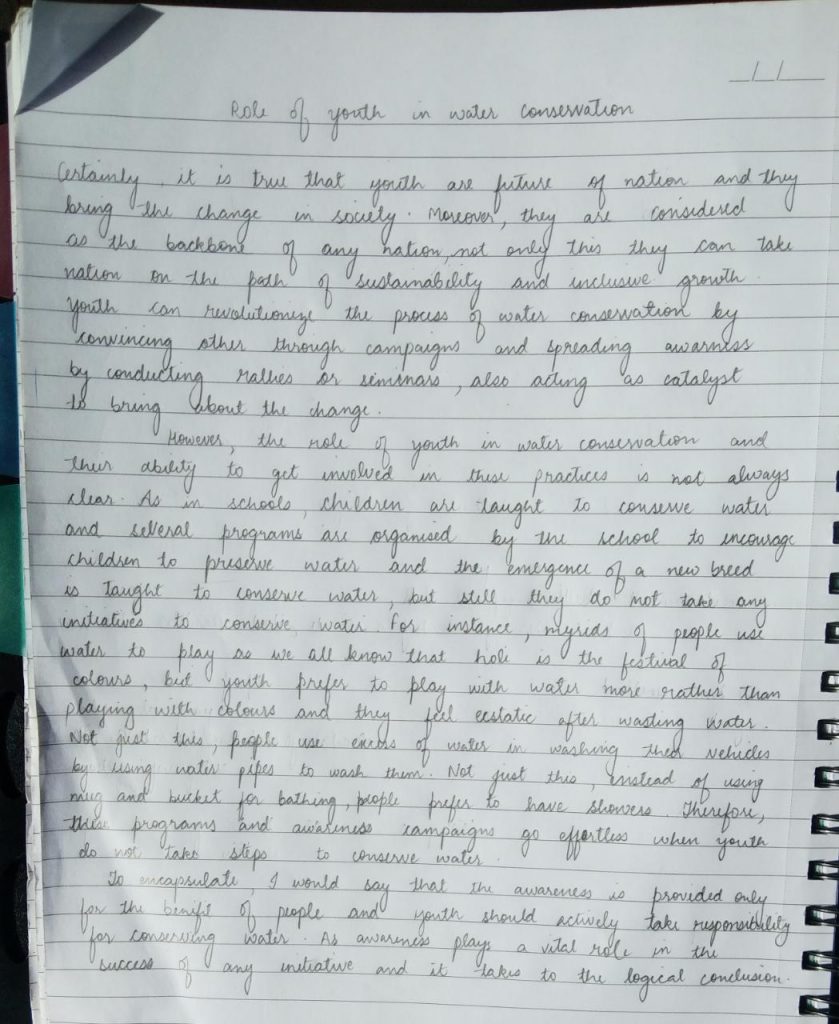 __/__/____
Role of youth in water conservation
Certainly, it is true that youth are future of nation and they
bring the change in society. Moreover, they are considered
as the backbone of any nation, not only this they can take
nation on the path of sustainability and inclusive growth.
Youth can revolutionize the process of water conservation by
convincing other through campaigns and spreading awarness
by conducting rallies or seminars, also acting as catalyst
to bring about the change.
However, the role of youth in water conservation and
their ability to get involved in these practices is not always
clear. As in schools, children are taught to conserve water
and several programs are organised by the school to encourage
children to preserve water and the emergence of a new breed
is taught to conserve water, but still they do not take any
initiatives to conserve water. For instance, myrids of people use
water to play as we all know that holi is the festival of
colours, but youth prefer to play with water more rather than
playing with colours and they feel ecstatic after wasting water.
Not just this, people use excess of water in washing their vehicles
by using water pipes to wash them. Not just this, instead of using
mug and bucket for bathing, people prefer to have showers. Therefore,
these programs and awareness campaigns go effortless when youth
do not take steps to conserve water.
To encapsulate, I would say that the awareness is provided only
for the benifit of people and youth should actively take responsibility
for conserving water. As awareness plays a vital role in the
success of any initiative and it takes to the logical conclusion.